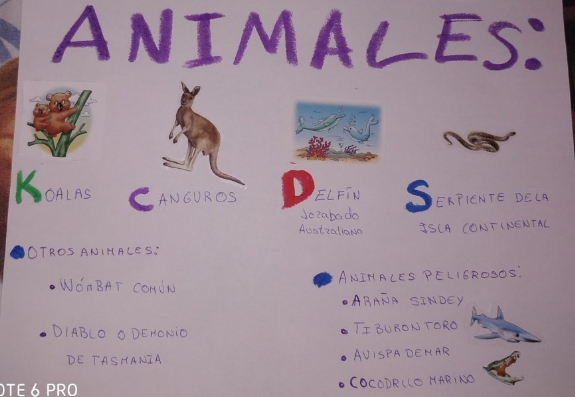 ANIMALES:
KOALAS
CANGUROS
DELFÍN
Jorobado
Australiano
SERPIENTE DE LA
ISLA CONTINENTAL
OTROS ANIMALES:
• WÓMBAT COMÚN
• DIABLO O DEMONIO
DE TASMANIA
ANIMALES PELIGROSOS:
• ARAÑA SINDEY
• TIBURON TORO
• AVISPA DE MAR
• COCODRILO MARINO
OTE 6 PRO